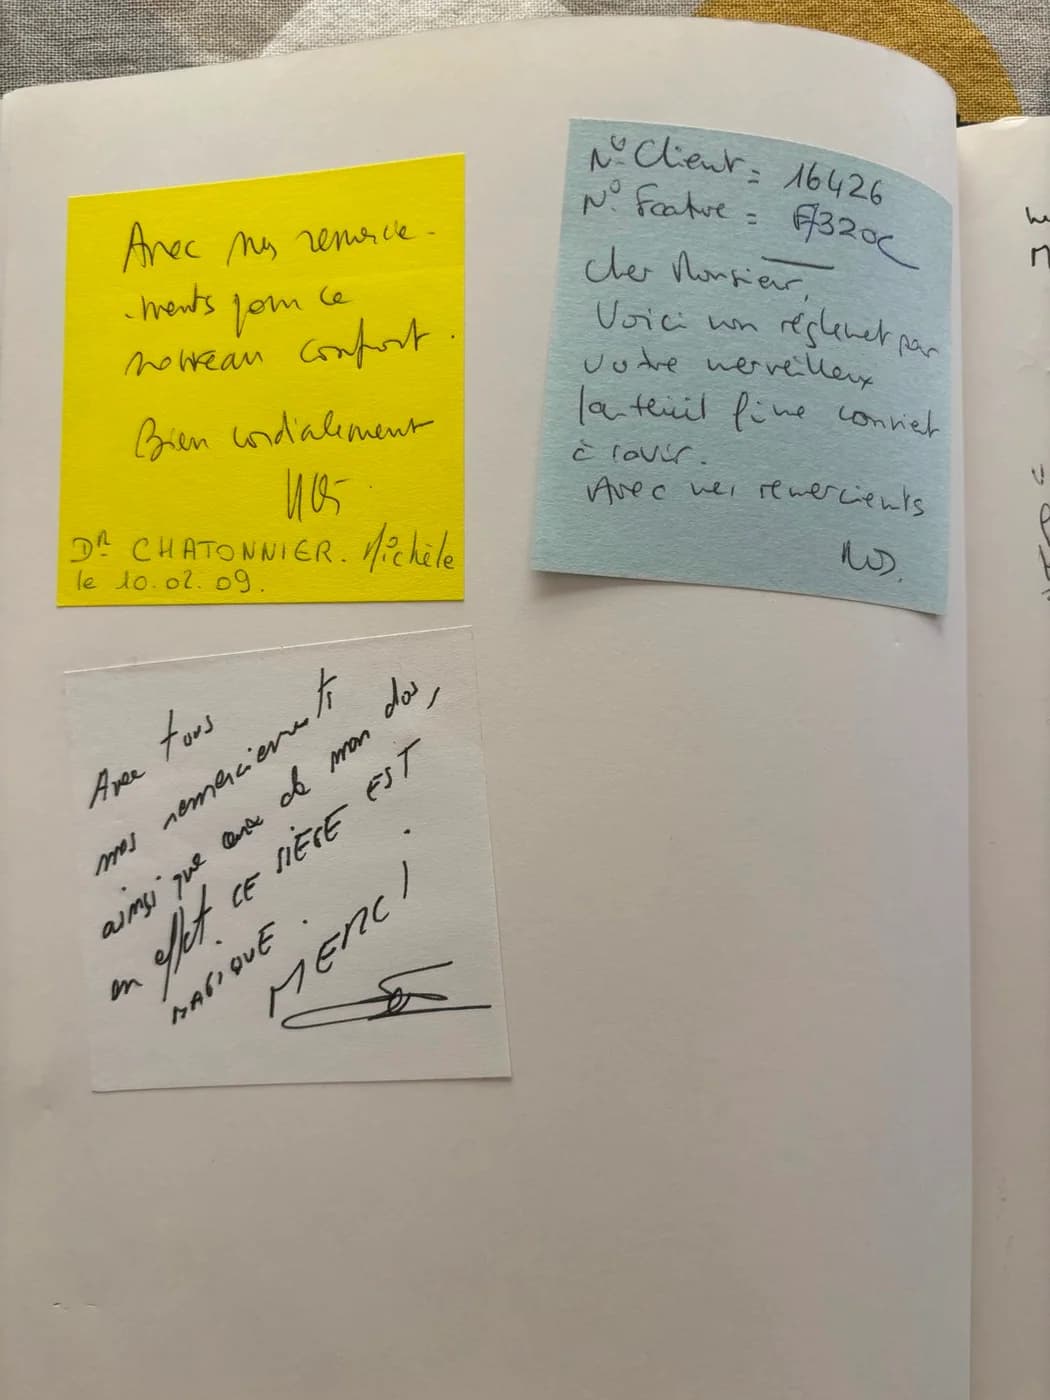 Avec mes remercie-
-ments pour ce
nouveau confort.
Bien cordialement
Dr CHATONNIER. Michèle
le 10.02.09.
N° Client = 16426
N° Facture =
Cher Monsieur,
Voici un règlement par
votre merveilleux
fauteuil convient
à ravir.
Avec mes remerciements
Avec tous
mes remerciements
ainsi que ceux de mon dos,
en effet. CE SIEGE EST
MAGIQUE.
MERCI